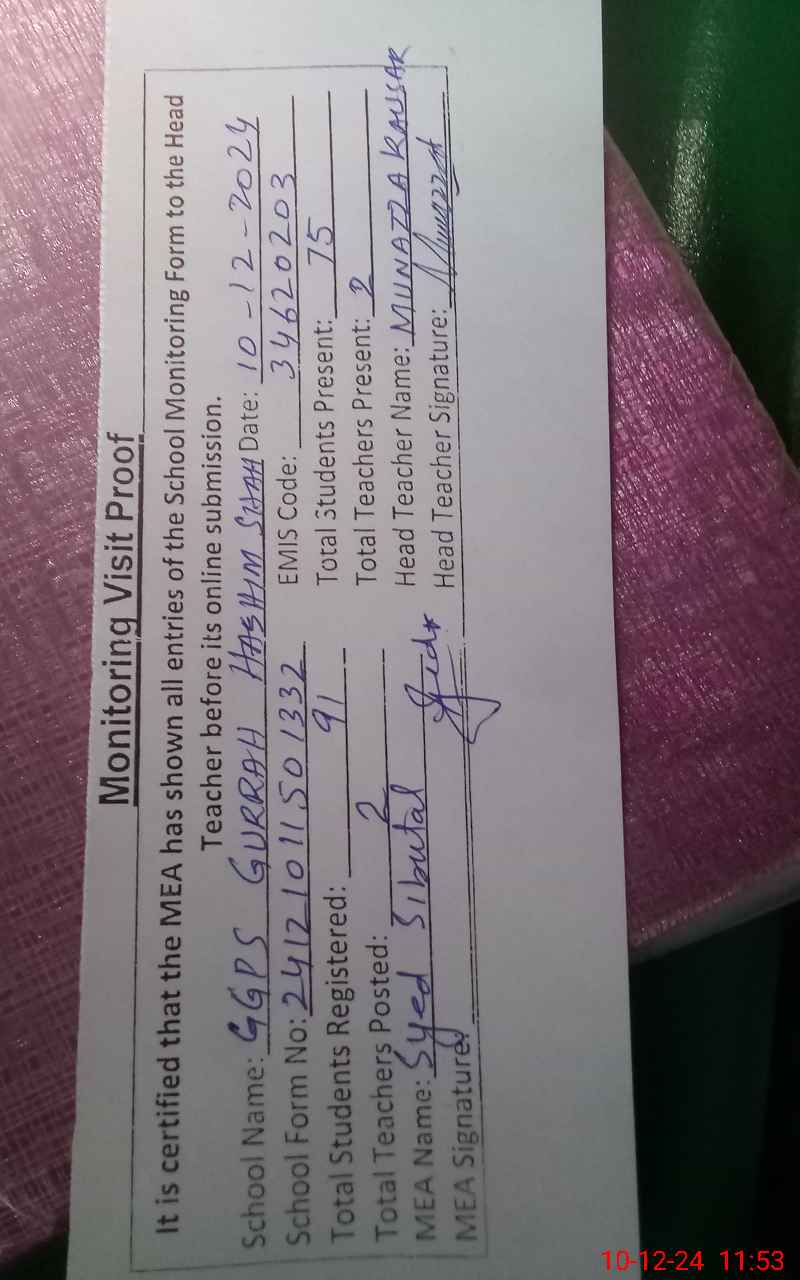 Monitoring Visit Proof
It is certified that the MEA has shown all entries of the School Monitoring Form to the Head
Teacher before its online submission.
School Name: GGPS GURRAH HASHIM SHAH Date: 10-12-2024
School Form No: 24121011501332 EMIS Code: 34620203
Total Students Registered: 91 Total Students Present: 75
Total Teachers Posted: 2 Total Teachers Present: 2
MEA Name: Syed Sibutal Head Teacher Name: MUNAZZA KAUSAR
MEA Signature: Head Teacher Signature:
10-12-24 11:53